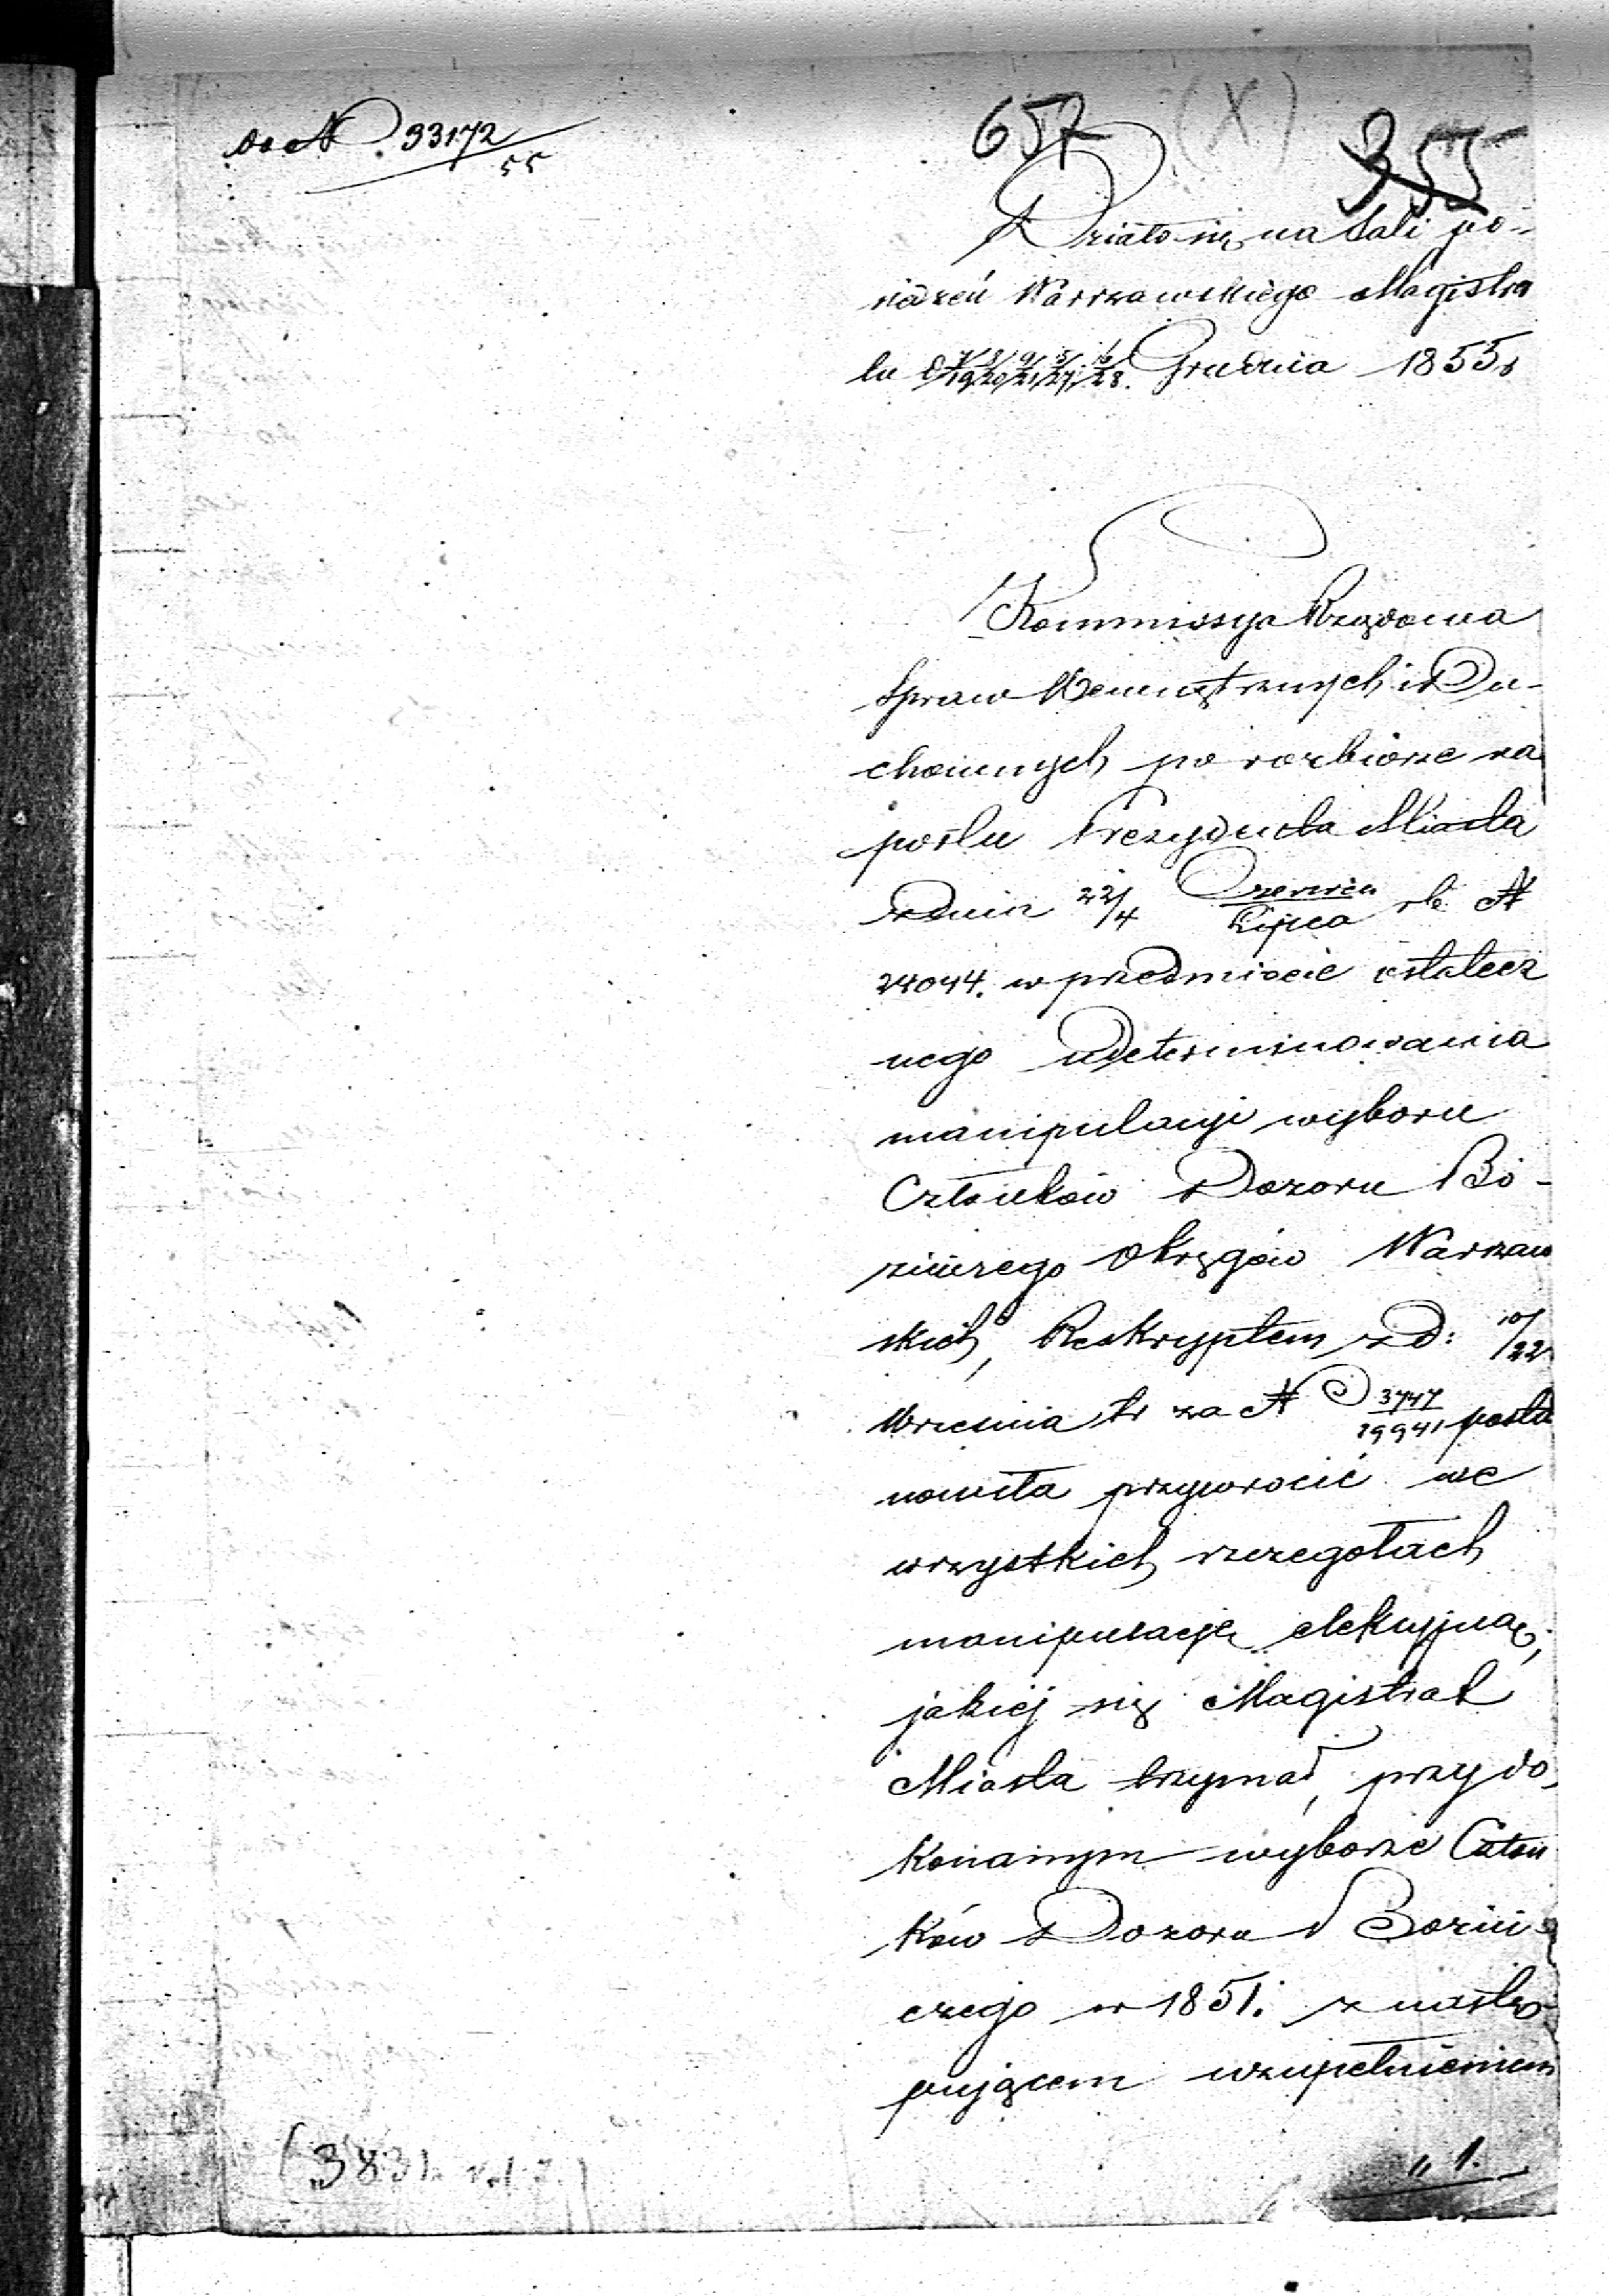 do N 33172/55
657 (X) 355
Działo się na Sali po-
siedzeń Warszawskiego Magistra
tu d 7/19 8/20 9/21 15/27 16/28. Grudnia 1855 r
Kommissya Rządowa
Spraw Wewnętrznych i Du-
chownych po rozbiorze ra
portu Prezydenta Miasta
z dnia 22/4 Czerwca/Lipca rb N
24044. w przedmiocie ostatecz
nego zdeterminowania
manipulacyi wyboru
Członków Dozoru Bó-
żniczego Okręgów Warszaw
skich, Reskryptem z d: 10/22
Września tr za N 3747/19941 posta
nowiła przywrócić we
wszystkich szczegółach
manipulacyę elekcyjną,
jakiej się Magistrat
Miasta trzymał, przy do
konanym wyborze Człon
ków Dozoru Bożni
czego w 1851. z nastę
pującem uzupełnieniem
„ 1.
(383